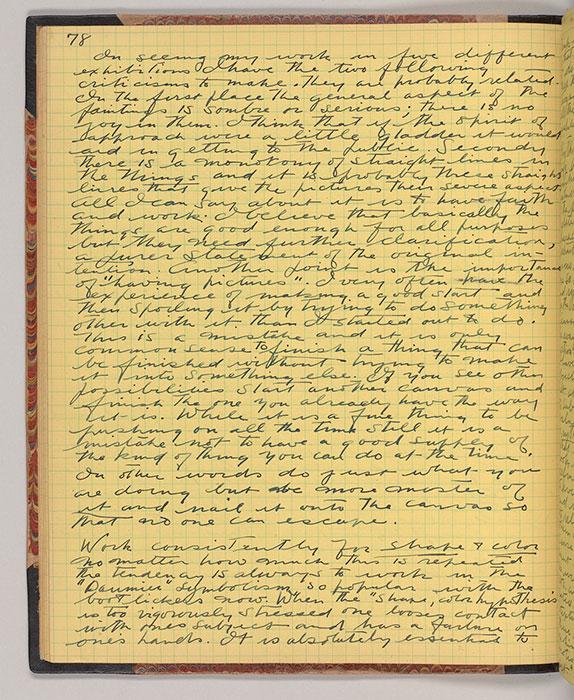 78
In seeing my work in five different
exhibitions I have the two following
criticisms to make. They are probably related.
In the first place the general aspect of the
paintings is sombre or serious; there is no
joy in them. I think that if the spirit of
approach were a little gladder it would
aid in getting to the public. Secondly
there is a monotony of straight lines in
the things and it is probably these straight
lines that give the pictures their severe aspect
All I can say about it is to have faith
and work. I believe that basically the
things are good enough for all purposes
but they need further clarification,
a surer statement of the original in-
tention. Another point is the importance
of "having pictures". I very often have the
experience of making a good start and
then spoiling it by trying to do something
other with it than I started out to do.
This is a mistake and it is only
common sense to finish a thing that can
be finished without trying to make
it into something else. If you see other
possibilities start another canvas and
finish the one you already have the way
it is. While it is a fine thing to be
pushing on all the time still it is a
mistake not to have a good supply of
the kind of thing you can do at the time.
In other words do just what you
are doing but be more master of
it and nail it onto the canvas so
that no one can escape.
Work consistently for shape & color
no matter how much this is repeated
the tendency is always to work in the
"Daumier" symbolism so popular with the
bootlickers now. When the "shape, color hypothesis
is too vigorously stressed one loses contact
with ones subject and has a failure on
ones hands. It is absolutely essential to